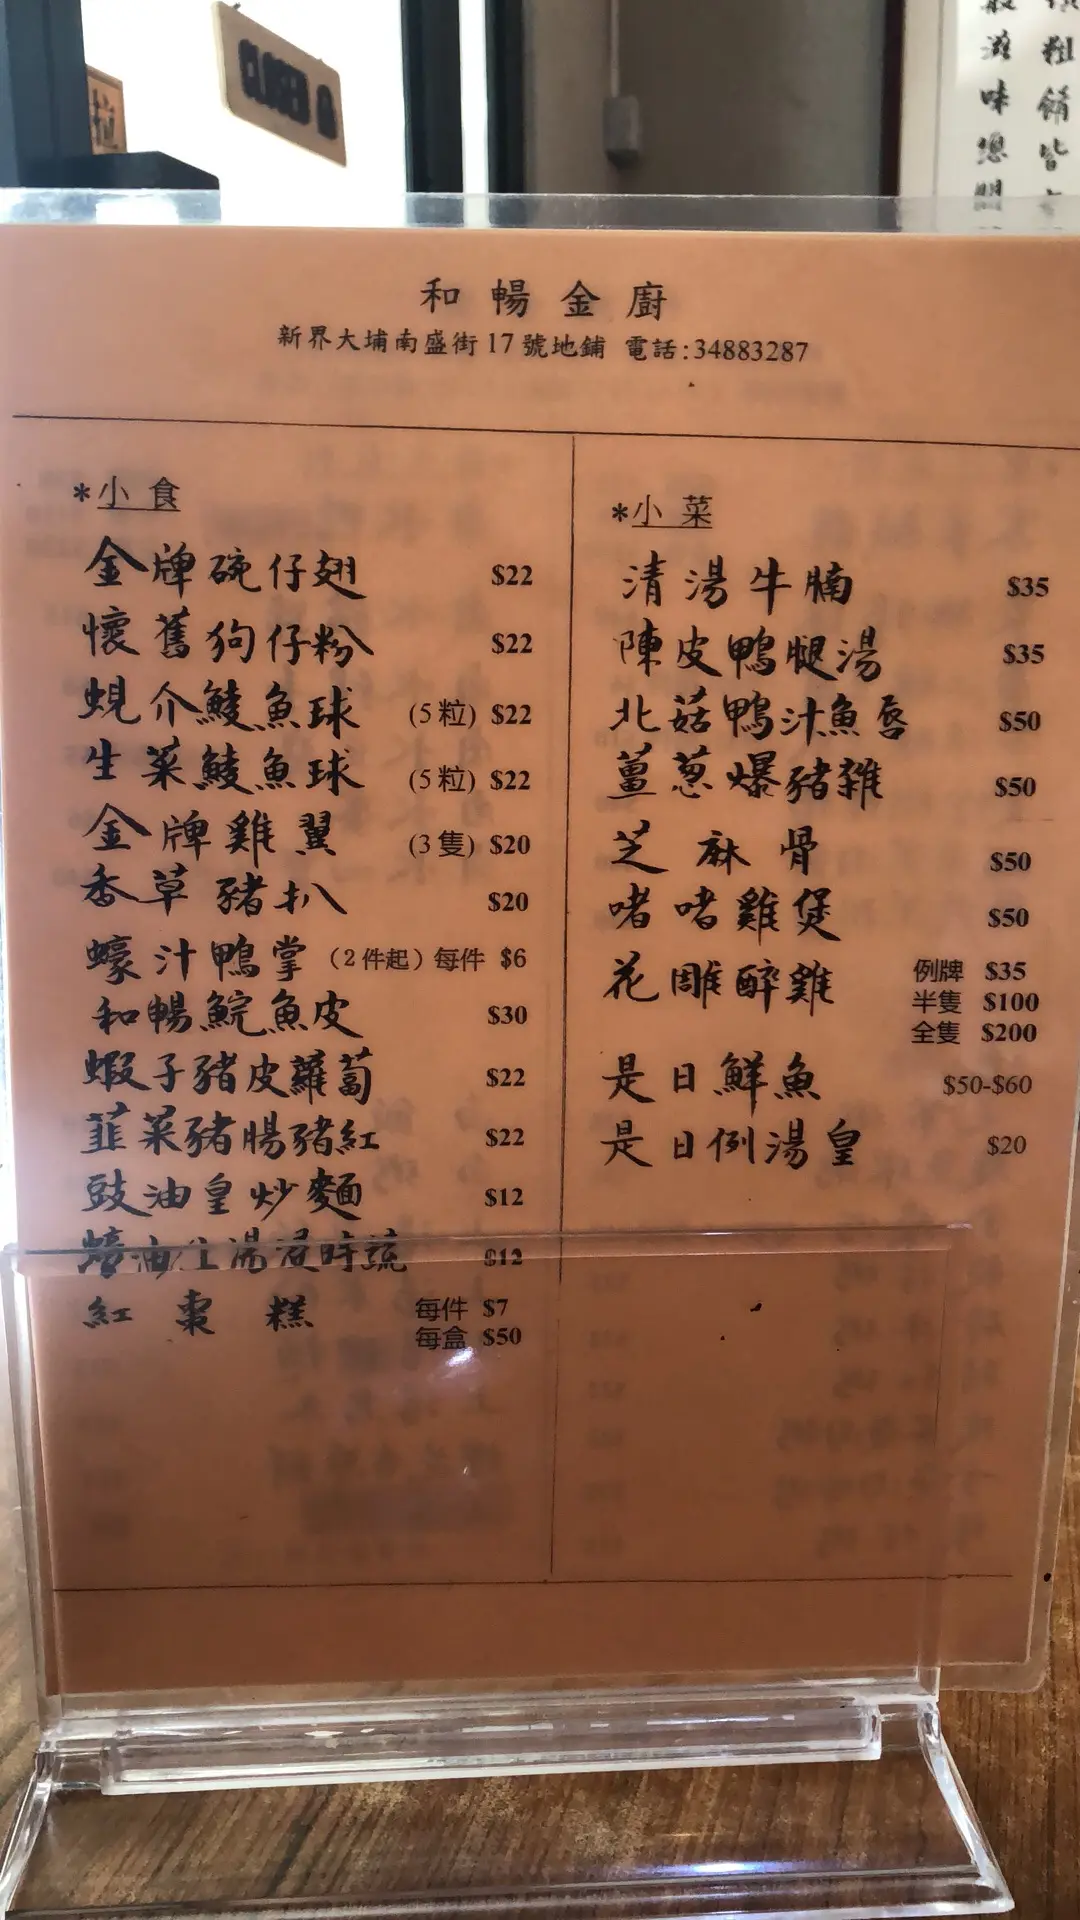 敍 滋 味 總 關
粗 餚 皆
和暢金廚
新界大埔南盛街17號地鋪 電話:34883287
*小食
金牌碗仔翅 $22
懷舊狗仔粉 $22
蜆介鯪魚球 (5粒) $22
生菜鯪魚球 (5粒) $22
金牌雞翼 (3隻) $20
香草豬扒 $20
蠔汁鴨掌 (2件起) 每件 $6
和暢鯇魚皮 $30
蝦子豬皮蘿蔔 $22
韮菜豬腸豬紅 $22
豉油皇炒麵 $12
蠔油/上湯浸時蔬 $12
紅棗糕 每件 $7
每盒 $50
*小菜
清湯牛腩 $35
陳皮鴨腿湯 $35
北菇鴨汁魚唇 $50
薑葱爆豬雜 $50
芝麻骨 $50
啫啫雞煲 $50
花雕醉雞 例牌 $35
半隻 $100
全隻 $200
是日鮮魚 $50-$60
是日例湯皇 $20